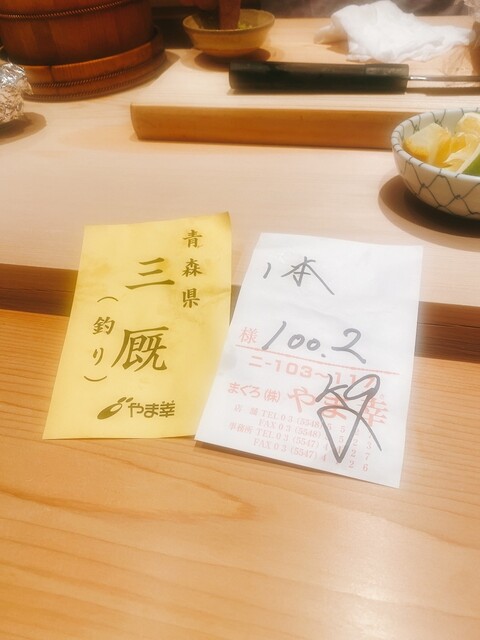 青森県
三厩
(釣り)
やま幸
1本
様 100.2
kg
ニ-103~11
まぐろ(株)やま幸
店舗TEL03(5548)
FAX03(5548)
事務所TEL03(5547)
FAX03(5547)